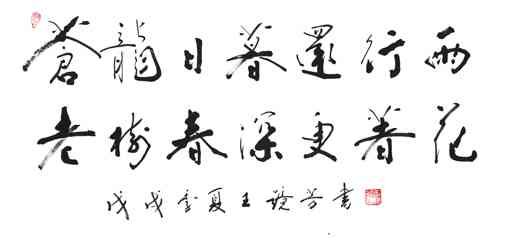 蒼龍日暮還行雨
老樹春深更著花
戊戌夏王書